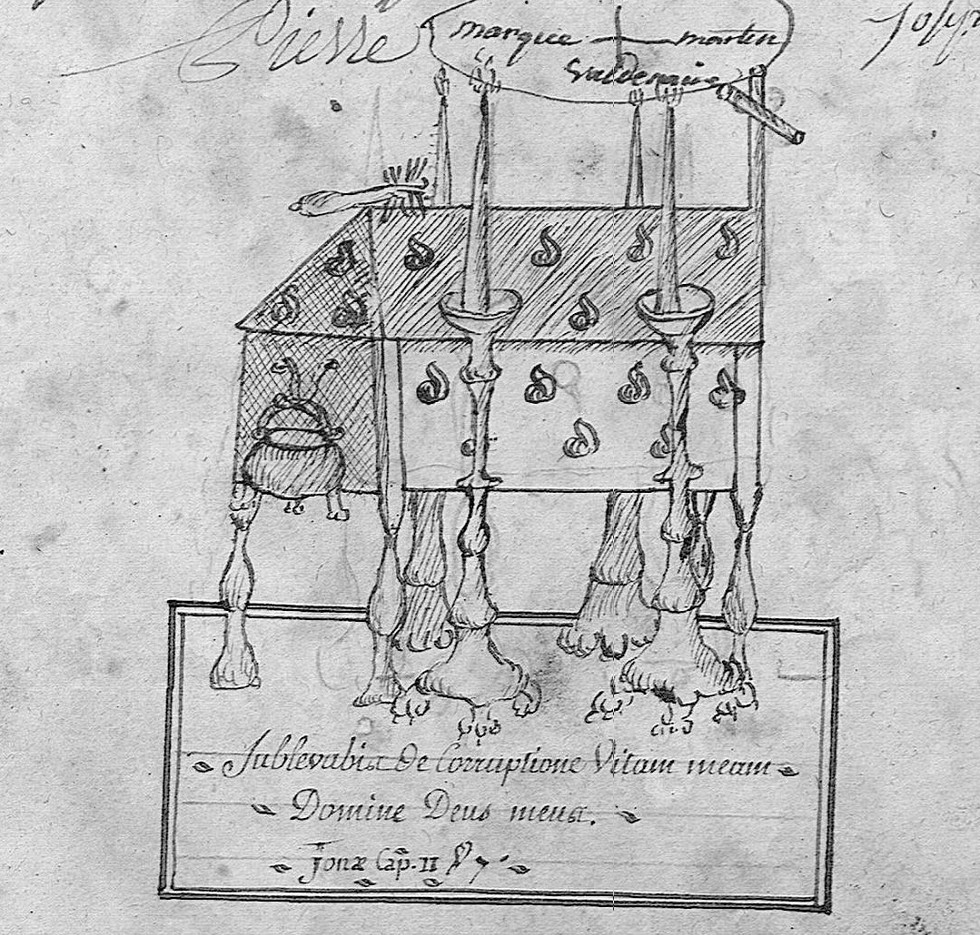 Pierre
marque martin
Valdenaire
Josep
Sublevabis de Corruptione Vitam meam
Domine Deus meus.
Jonæ Cap. II ℣ 7